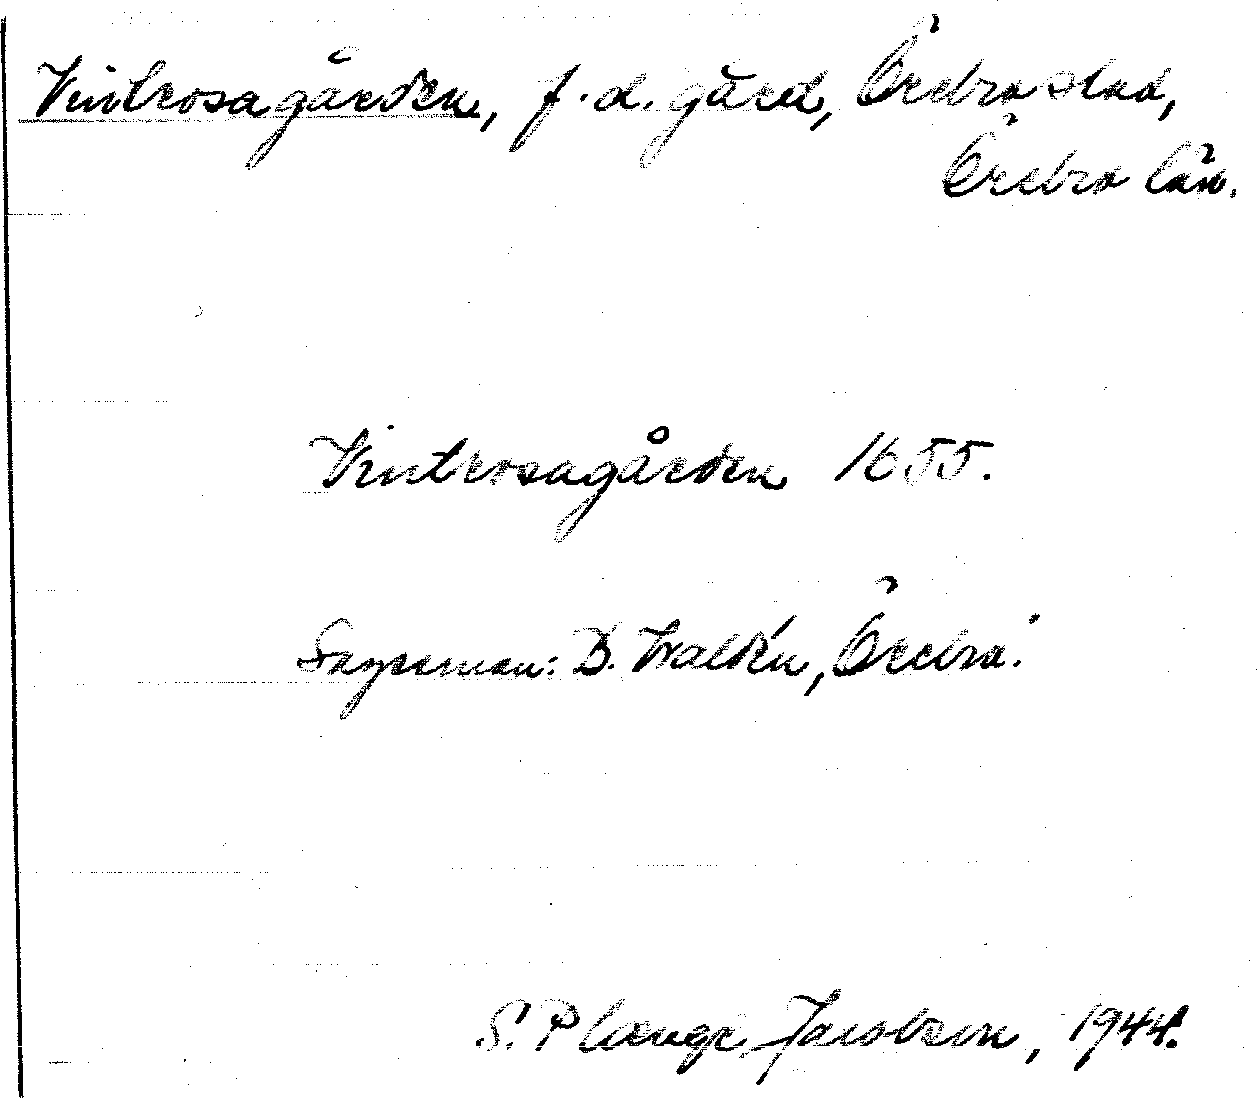 Vintrosagården, f.d. gård, Örebro stad,
Örebro län.
Vintrosagården 1655.
Sagesman: B. Waldén, Örebro.
S. Plænge Jacobson, 1944.